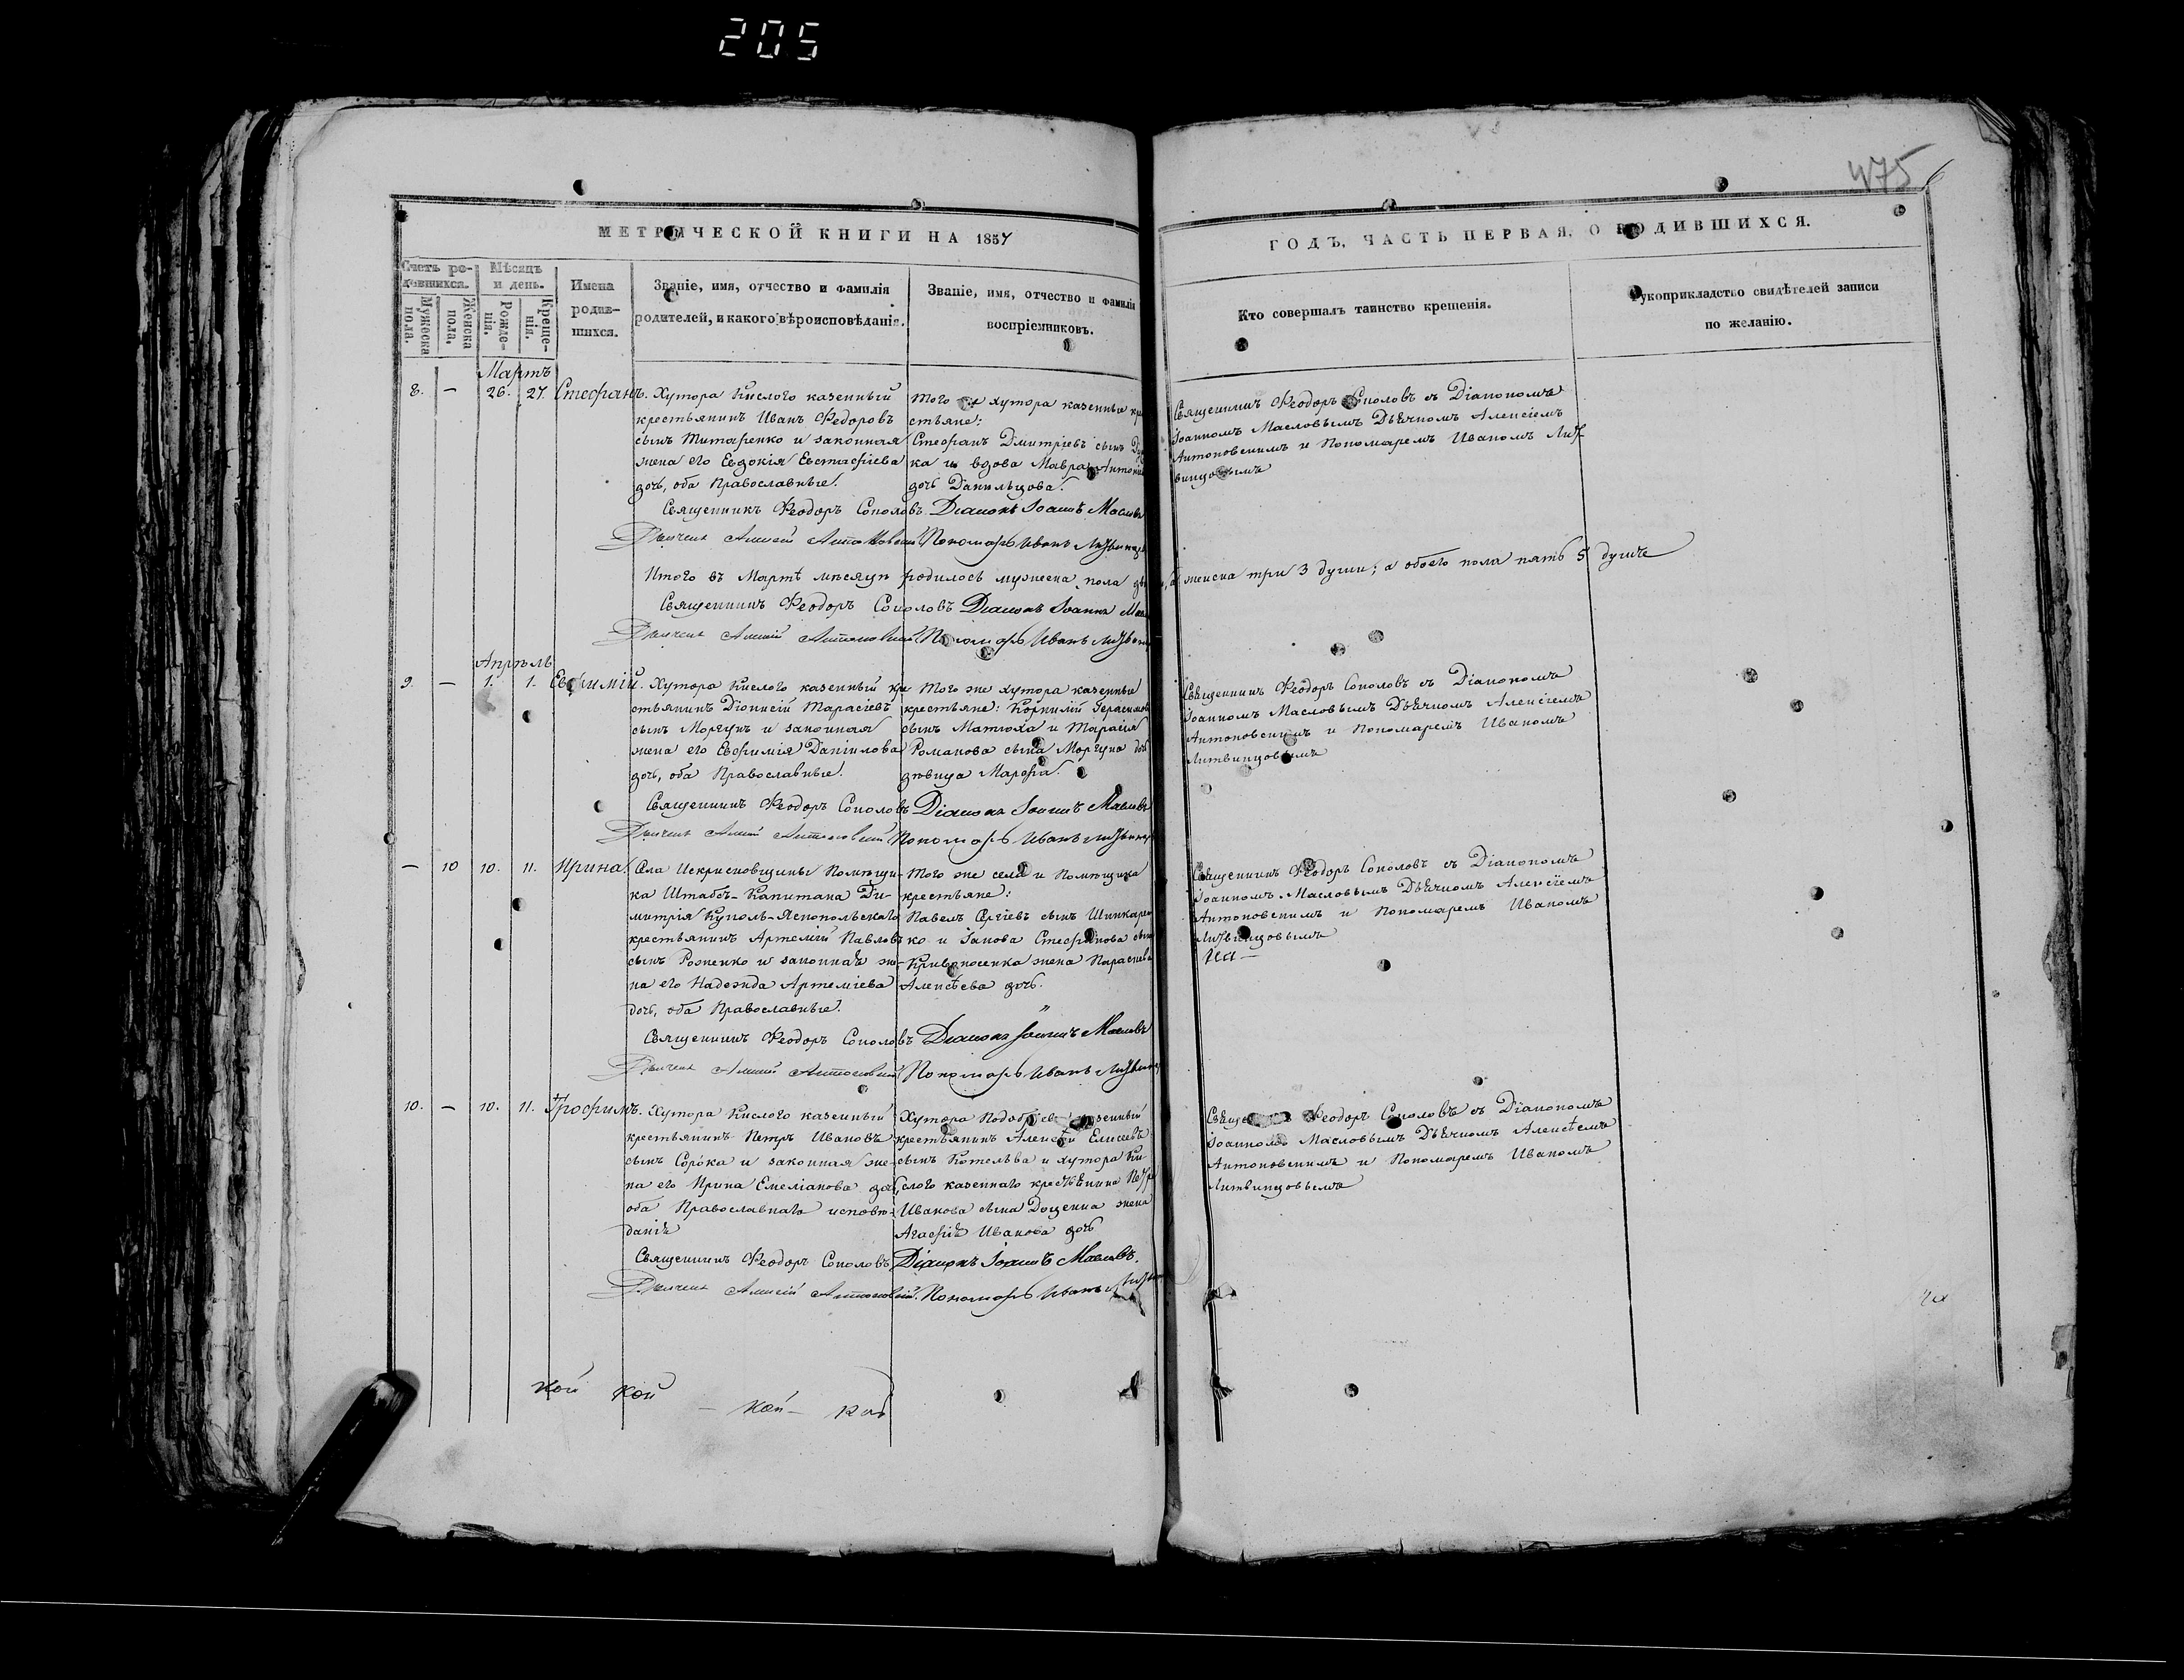 205
475
МЕТРИЧЕСКОЙ КНИГИ НА 1857
ГОДЪ, ЧАСТЬ ПЕРВАЯ, О РОДИВШИХСЯ.
Счетъ ро-
дившихся.
Мужеска пола.
Женска пола.
Мѣсяцъ
и день.
Рожде-
нія.
Креще-
нія.
Имена
родив-
шихся.
Званіе, имя, отчество и фамилія
родителей, и какого вѣроисповѣданія.
Званіе, имя, отчество и фамилія
воспріемниковъ.
Кто совершалъ таинство крещенія.
Рукоприкладство свидѣтелей записи
по желанію.
Мартъ
8. — 26. 27. Стефанъ.
Хутора Кислого казенный
крестьянинъ Иванъ Федоровъ
сынъ Титаренко и законная
жена его Евдокія Евстафіева
дочь, оба Православные.
Того же хутора казенные кре
стьяне:
Стефанъ Дмитріевъ сынъ
ка и вдова Мавра Антоно
дочь Данильцова.
Священникъ Феодоръ Соколовъ съ Діакономъ
Іоанномъ Масловымъ Дьячкомъ Алексіемъ
Антоновскимъ и Пономаремъ Иваномъ Лит
винцовымъ
Священникъ Феодоръ Соколовъ. Діаконъ Іоаннъ Масловъ
Дьячекъ Алексій Антоновскій Пономарь Иванъ Литвинцовъ
Итого въ Мартѣ мѣсяцѣ родилось мужеска пола
, а женска три 3 души; а обоего пола пять 5 душъ
Священникъ Феодоръ Соколовъ Діаконъ Іоаннъ Мас
Дьячекъ Алексій Антоновскій Пономарь Иванъ Литвин
Апрѣль
9. — 1. 1. Евфимій.
Хутора Кислого казенный кре
стьянинъ Діонисій Тарасіевъ
сынъ Моргунъ и законная
жена его Евфимія Данилова
дочь, оба Православные.
Того же хутора казенные
крестьяне: Корнилій Герасимов
сынъ Матюха и Тарасія
Романова сына Моргуна дочь
дѣвица Марфа.
Священникъ Феодоръ Соколовъ съ Діакономъ
Іоанномъ Масловымъ Дьячкомъ Алексіемъ
Антоновскимъ и Пономаремъ Иваномъ
Литвинцовымъ
Священникъ Феодоръ Соколовъ Діаконъ Іоаннъ Масловъ
Дьячекъ Алексій Антоновскій Пономарь Иванъ Литвинцов
— 10 10. 11. Ирина.
Села Искрисковщины Помѣщи-
ка Штабсъ-Капитана Ди-
митрія Куколь-Яснопольскаго
крестьянинъ Артемій Павловъ
сынъ Роженко и законная же-
на его Надежда Артеміева
дочь, оба Православные.
Того же села и Помѣщика
крестьяне:
Павелъ Сергіевъ сынъ Шинкарен
ко и Іакова Стефанова сына
Кривоносенка жена Параскева
Алексѣева дочь.
Священникъ Феодоръ Соколовъ съ Діакономъ
Іоанномъ Масловымъ Дьячкомъ Алексіемъ
Антоновскимъ и Пономаремъ Иваномъ
Литвинцовымъ
Священникъ Феодоръ Соколовъ Діаконъ Іоаннъ Масловъ
Дьячекъ Алексій Антоновскій Пономарь Иванъ Литвинц
10. — 10. 11. Трофимъ.
Хутора Кислого казенный
крестьянинъ Петръ Ивановъ
сынъ Сорока и законная же-
на его Ирина Емеліанова дочь,
оба Православнаго исповѣ-
данія
Хутора казенный
крестьянинъ Алексѣй Елисеевъ
сынъ Котельва и хутора Ки-
слого казеннаго крестьянина Петра
Иванова сына Доценка жена
Агафія Иванова дочь
Священникъ Феодоръ Соколовъ съ Діакономъ
Іоанномъ Масловымъ Дьячкомъ Алексѣемъ
Антоновскимъ и Пономаремъ Иваномъ
Литвинцовымъ
Священникъ Феодоръ Соколовъ Діаконъ Іоаннъ Масловъ.
Дьячекъ Алексій Антоновскій. Пономарь Иванъ
кой кой
— кой —